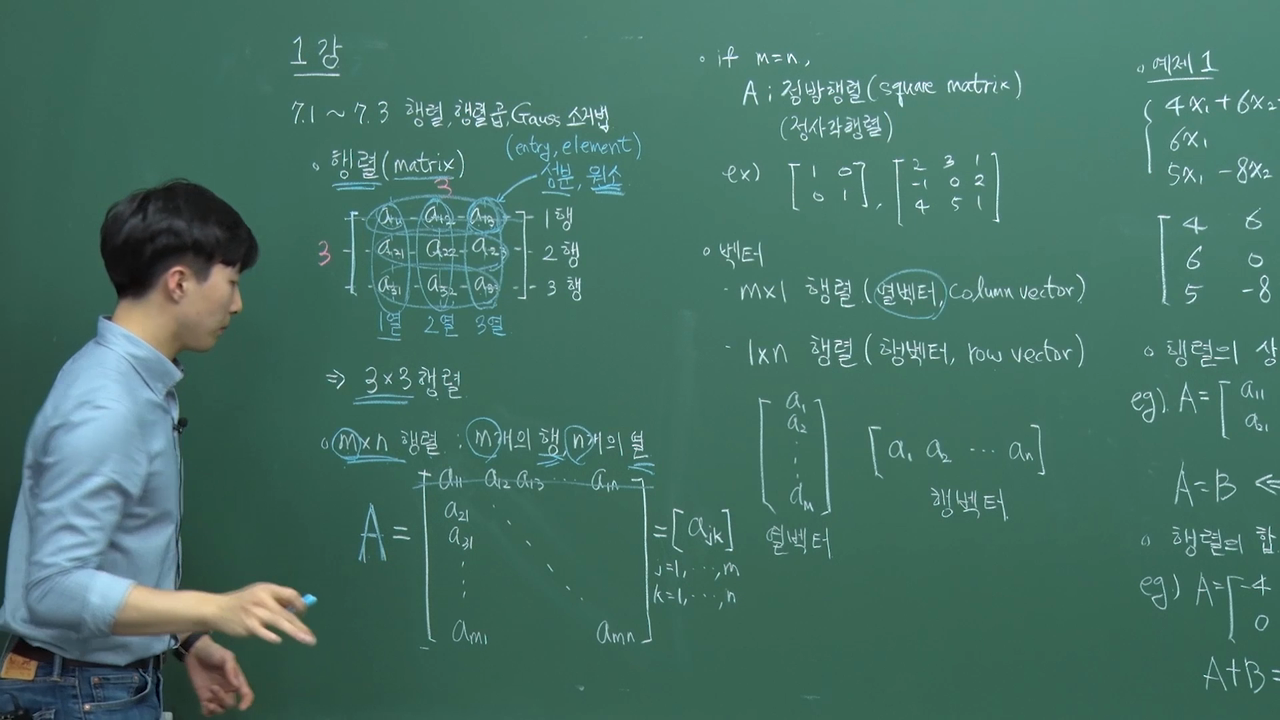 1강
7.1 ~ 7.3 행렬, 행렬곱, Gauss 소거법
(entry, element)
∘ 행렬(matrix)
성분, 원소
3
3
a11 a12 a13 1행
a21 a22 a23 2행
a31 a32 a33 3행
1열 2열 3열
⇒ 3×3 행렬
∘ m×n 행렬 ; m개의 행 n개의 열
a11 a12 a13 ⋯ a1n
a21
a31
A = = [ajk]
j=1, ⋯, m
k=1, ⋯, n
am1 amn
∘ if m=n,
A ; 정방행렬(square matrix)
(정사각행렬)
ex) [1 0 , [2 3 1
0 1] -1 0 2
4 5 1]
∘ 벡터
· m×1 행렬 (열벡터, column vector)
· 1×n 행렬 (행벡터, row vector)
a1
a2
⋮
am
열벡터
[a1 a2 ⋯ an]
행벡터
∘ 예제 1
4x1 + 6x2
6x1
5x1 - 8x2
4 6
6 0
5 -8
∘ 행렬의 상
eg) A = [a11
a21
A=B ⇐
∘ 행렬의 합
eg) A = [-4
0
A+B =